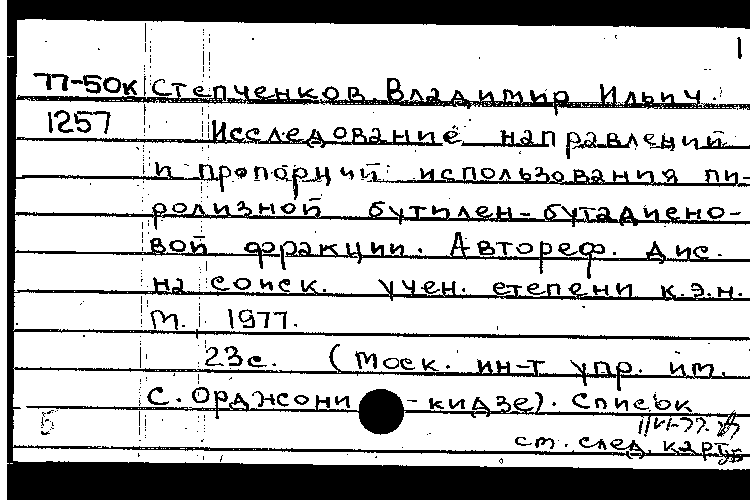 1
77-50к Степченков Владимир Ильич.
1257 Исследование направлений
и пропорций использования пи-
ролизной бутилен-бутадиено-
вой фракции. Автореф. дис.
на соиск. учен. степени к.э.н.
М. 1977.
23с. (Моск. ин-т упр. им.
С. Орджони-кидзе). Список
Б
см. след. карт.